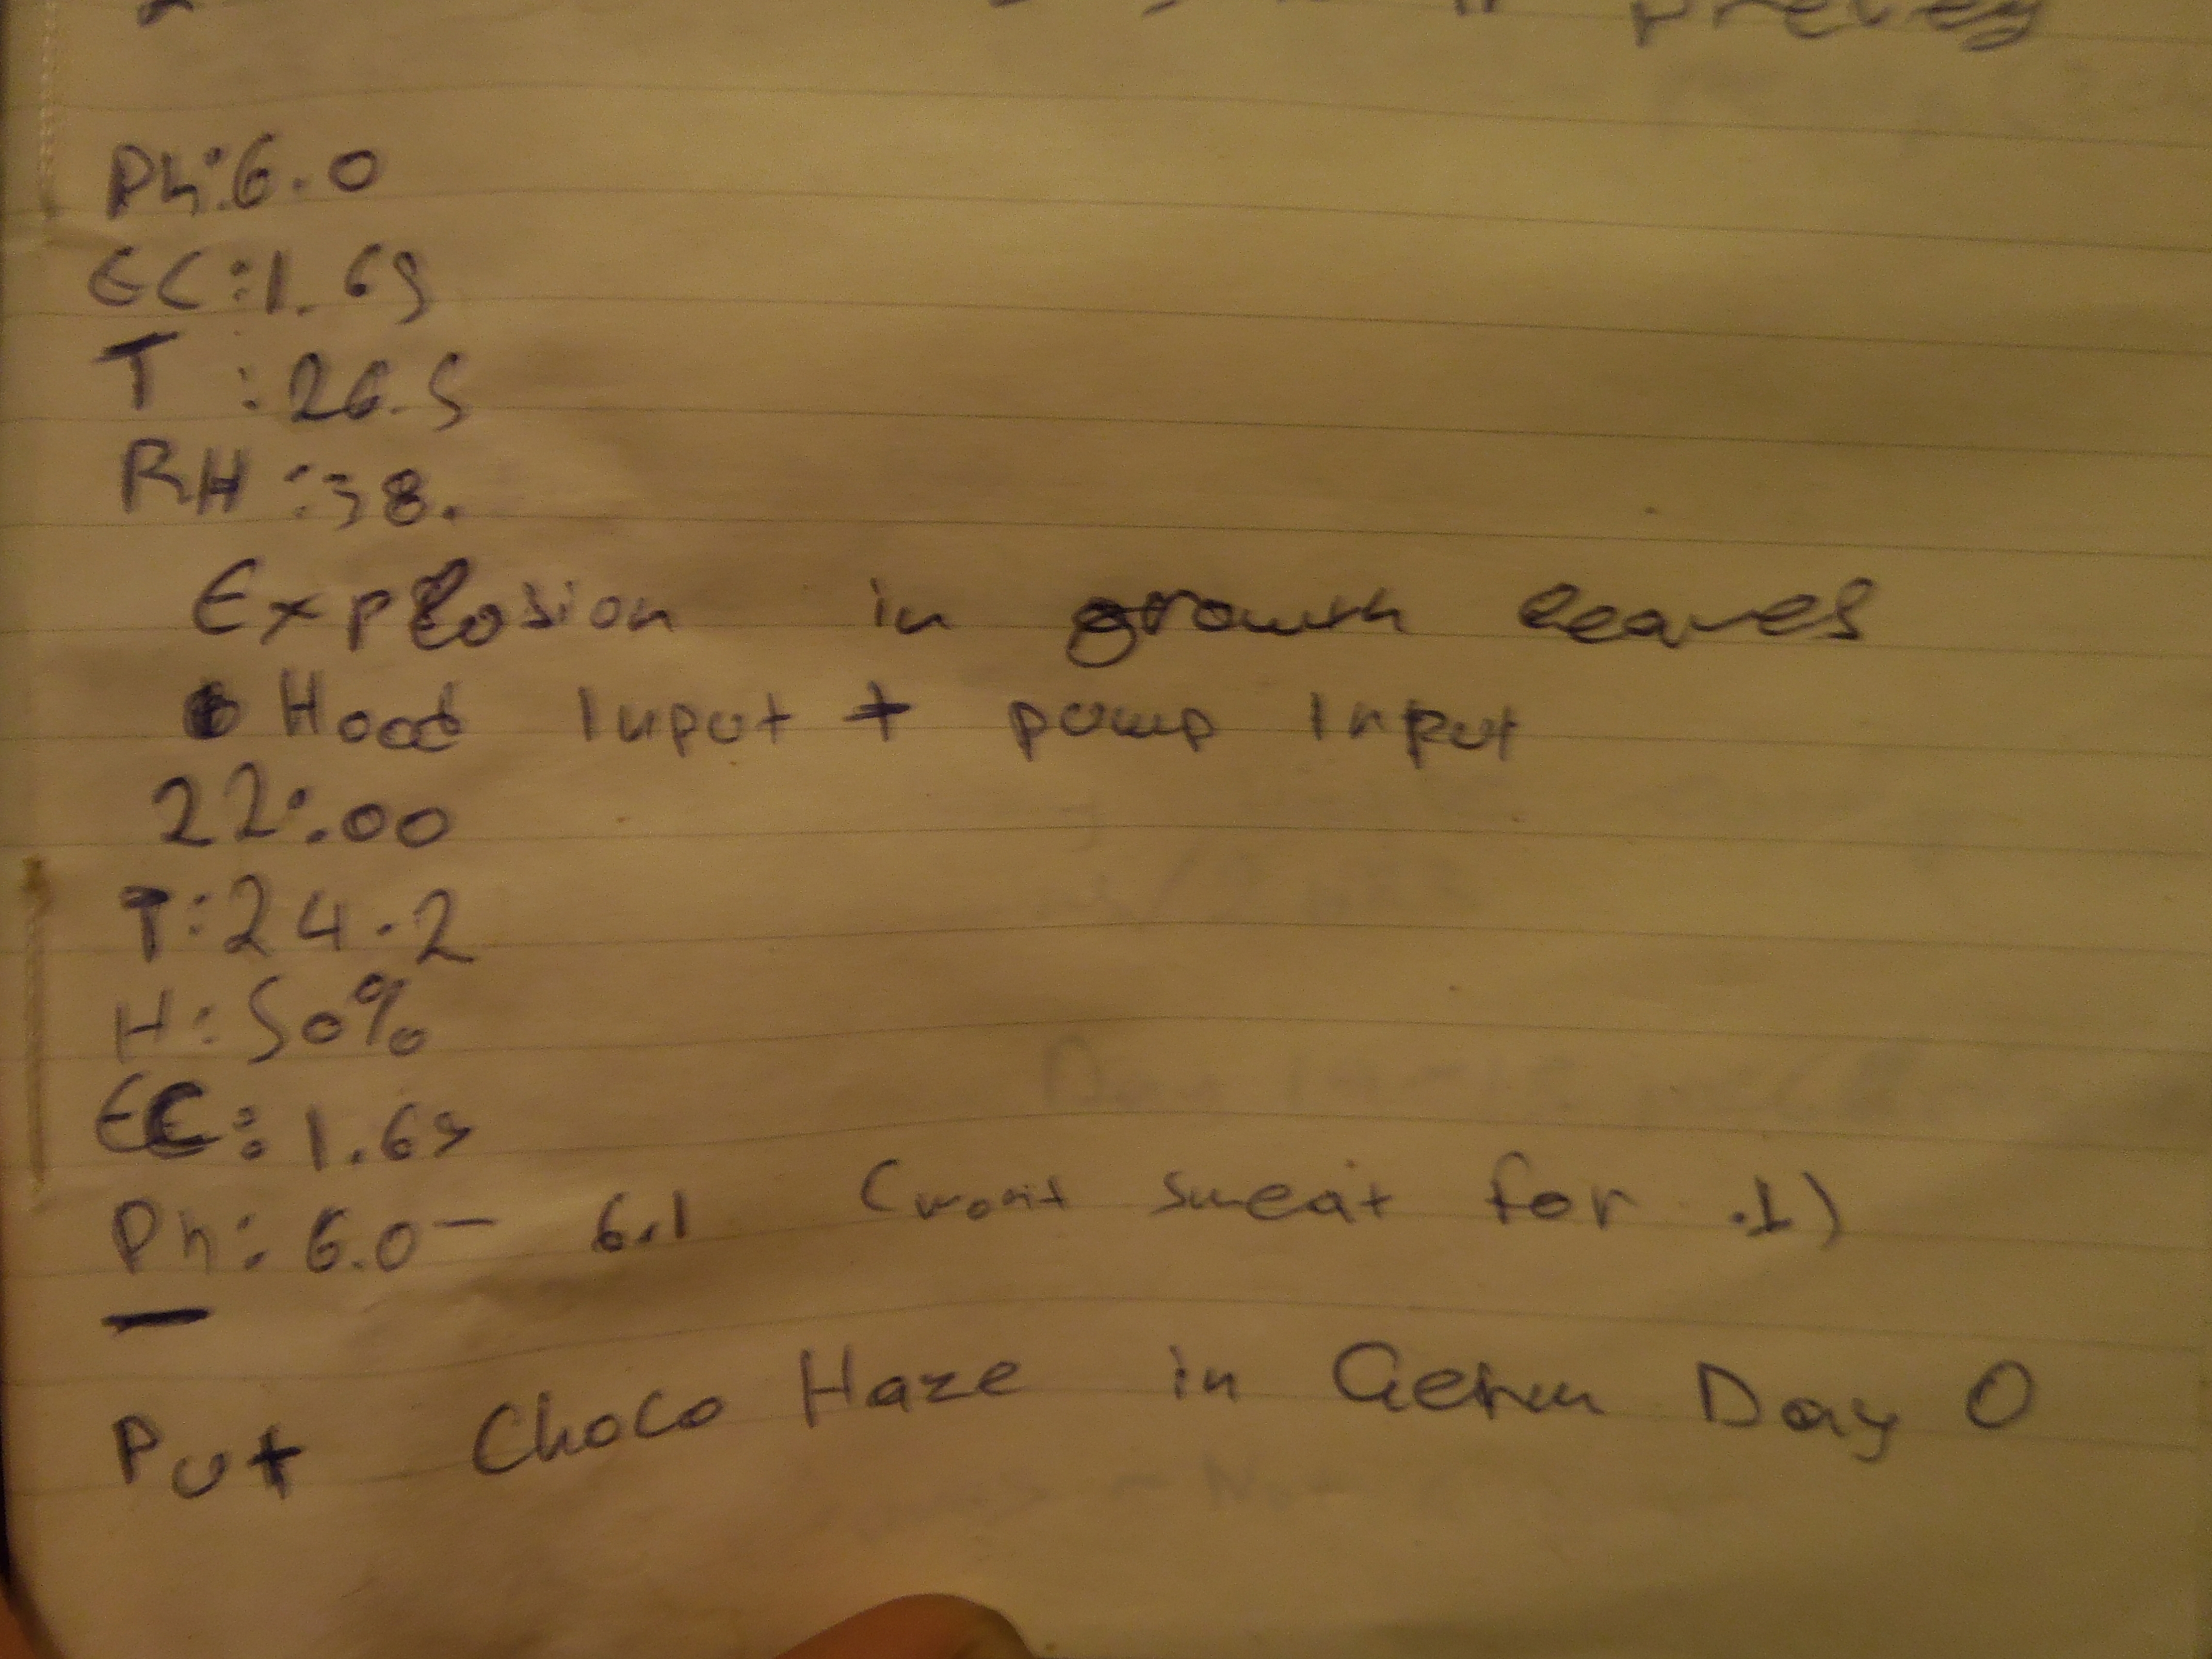 Ph:6.0
EC:1.69
T :26.5
RH :38.
Explosion in growth leaves
Hood Input + pump Input
22:00
T:24.2
H:50%
EC: 1.69
Ph: 6.0- 6.1 (wont sweat for .1)
—
Put Choco Haze in Germ Day 0